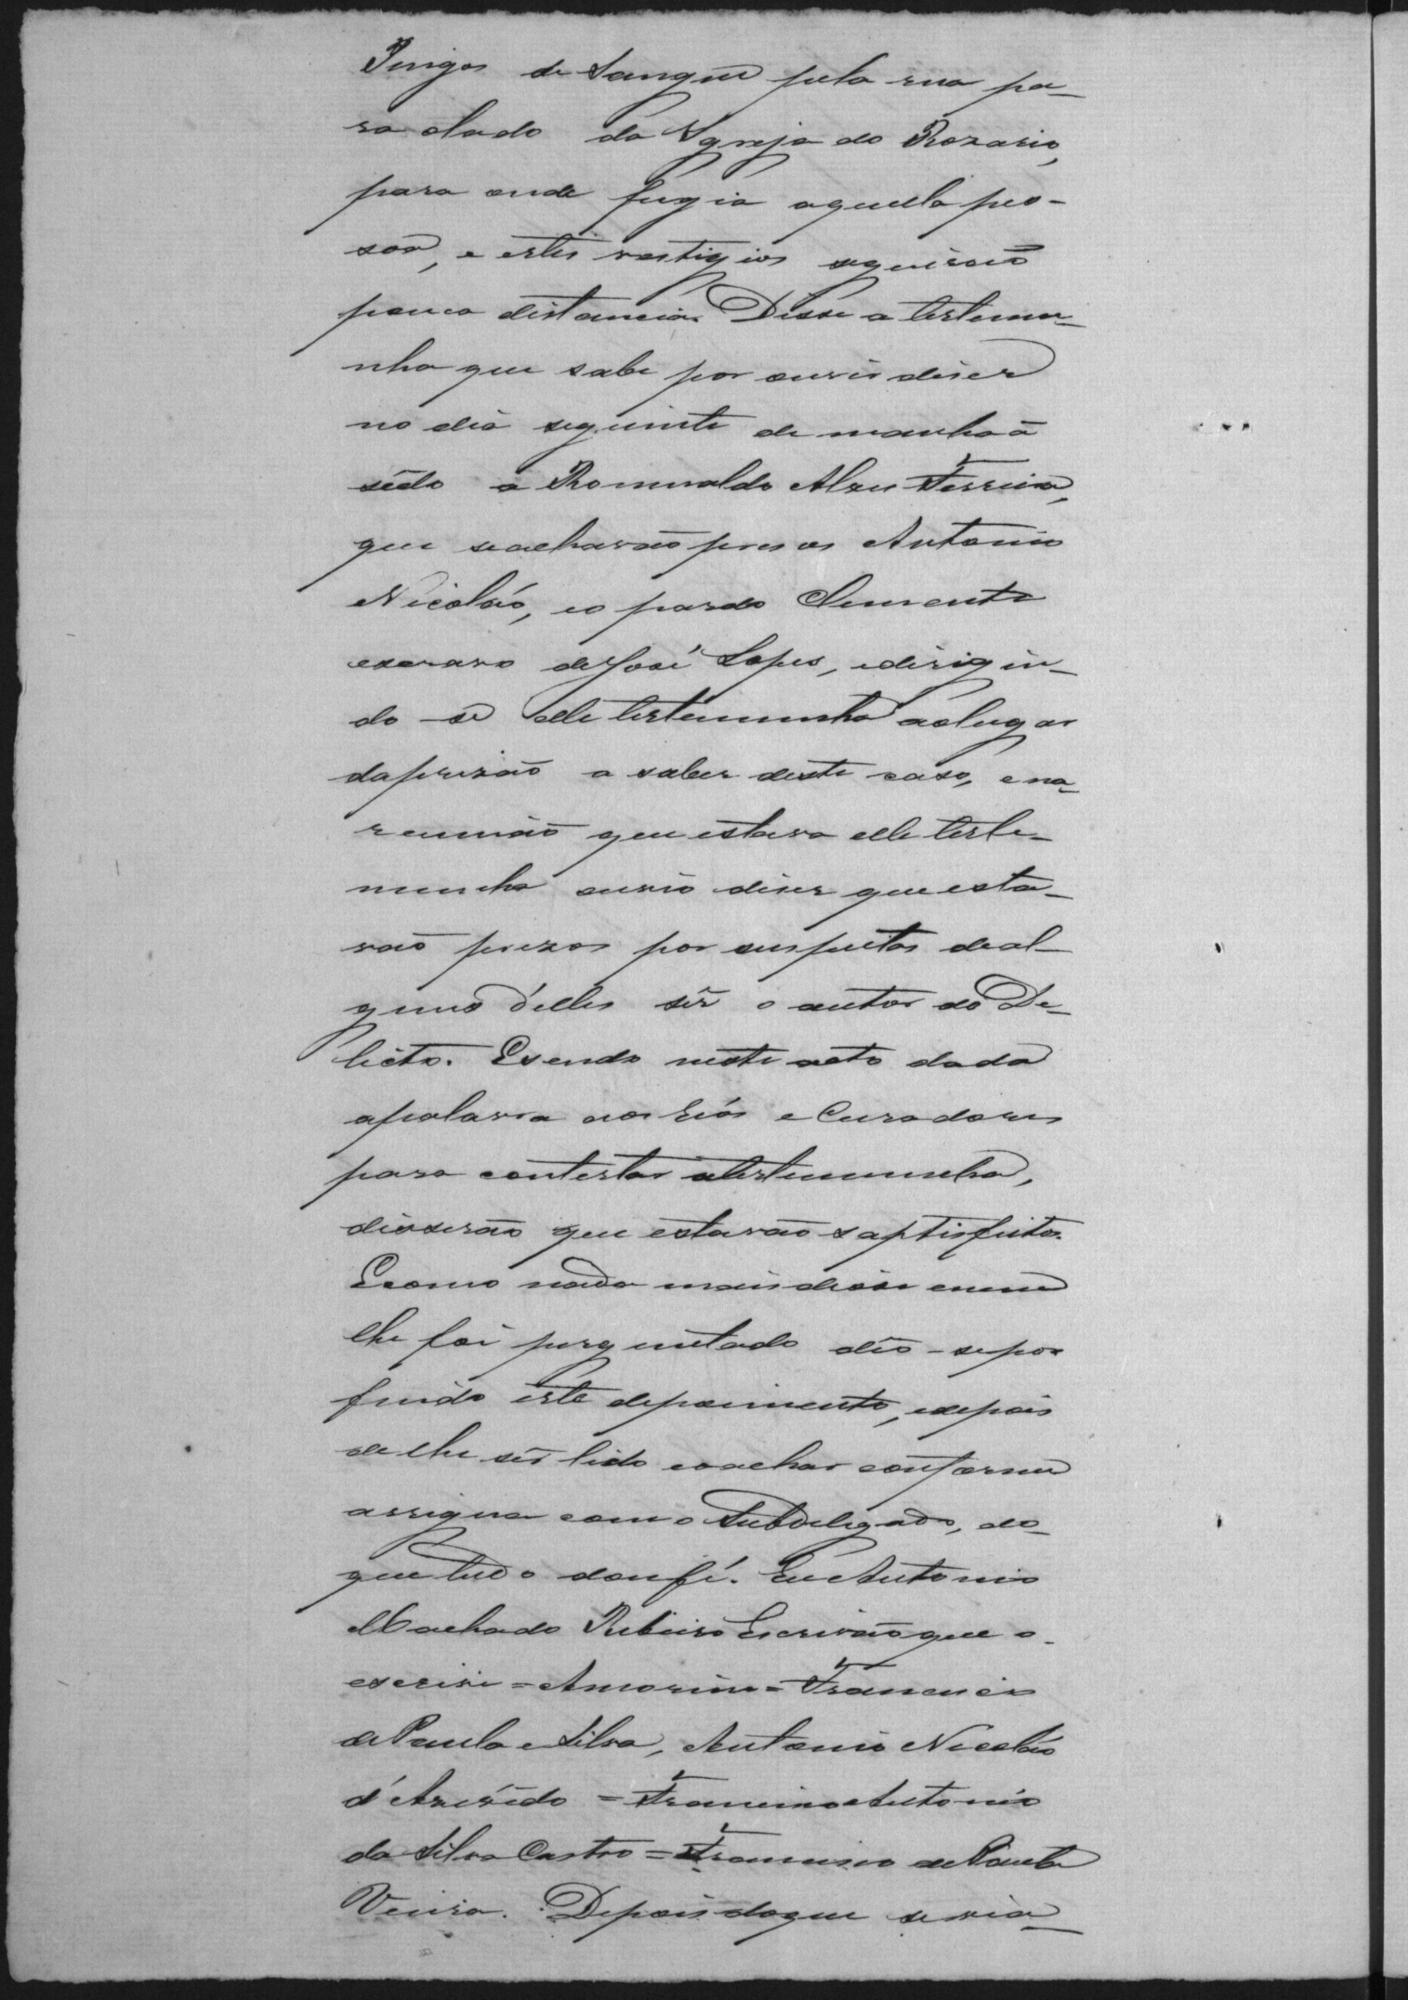 Pingos de Sangue pela rua pa-
ra olado da Igreja do Rozario,
para onde fugia aquella pes-
soa, e estes vestigios seguirão
pouca distancia. Disse a testemu-
nha que sabe por ouvir diser
no dia seguinte de manhaã
sêdo a Romualdo Alves Ferreira,
que seacharão presos Antonio
Nicoláo, eo pardo Clemente
escravo deJosé Lopes, edirigin-
do-se elle testemunha aolugar
daprizão a saber deste caso, ena
reunião que estava elle teste-
munha ouvio diser que esta-
vão prezos por suspeitas deal-
gum d'elles sêr o autor do De-
licto. Esendo neste acto dada
apalavra aos Réos e Curadores
para contestar atestemunha,
disserão que estavão saptisfeitos.
Ecomo nada mais disse enem
lhe foi perguntado deo-se por
findo este depoimento, edepois
de lhe sêr lido eoachar conforme
assigna com o Subdelegado, do
que tudo dou fé. Eu Antonio
Machado Ribeiro Escrivão que o
escrivi = Amorim = Francisco
de Paula e Silva, Antonio Nicoláo
d'Azevêdo = Francisco Antonio
da Silva Castro = Francisco de Paula
Vieira. Depois do que se via-